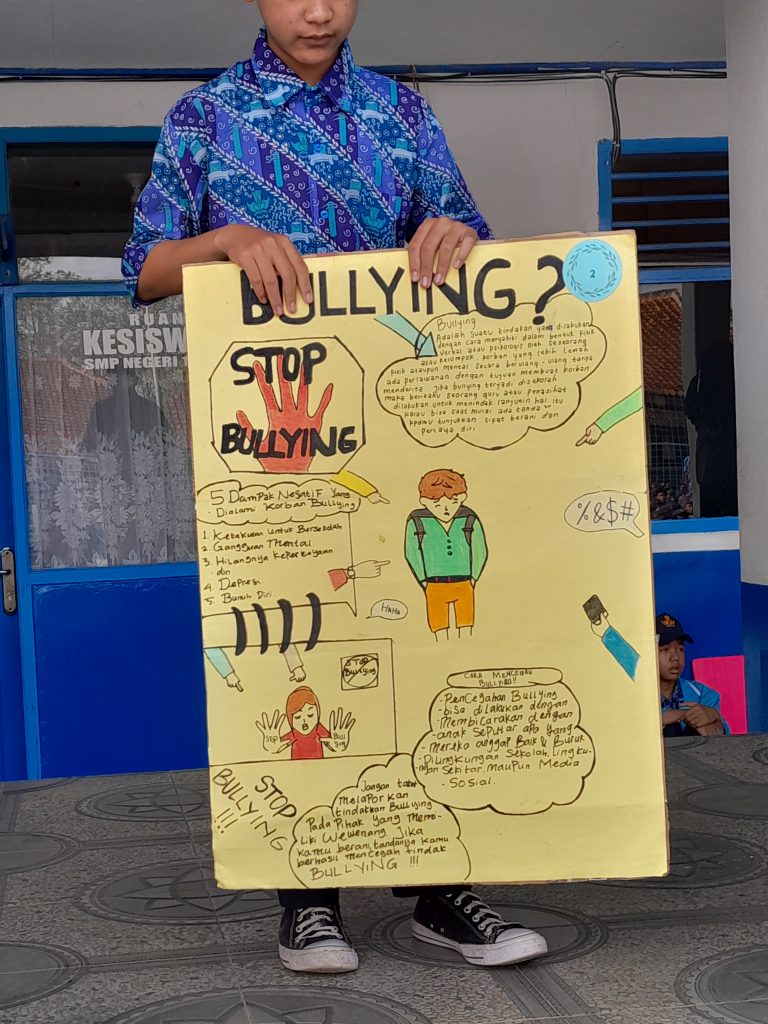 RUAN
KESISW
SMP NEGERI
BULLYING?
2
STOP
BULLYING
Bullying
Adalah suatu tindakan yang dilakukan
dengan cara menyakiti dalam bentuk fisik
verbal atau psikologis oleh seseorang
atau kelompok. korban yang lebih lemah
fisik ataupun mental secara berulang-ulang tanpa
ada perlawanan dengan tujuan membuat korban
menderita. jika bullying terjadi disekolah.
maka beritahu seorang guru atau penasihat
dilakukan untuk menindak lanjutin hal itu
kalau bisa saat mulai ada tanda"
kpdmu tunjukkan sipat berani dan
percaya diri.
5 Dampak Negatif Yang
Dialami Korban Bullying
1. Ketakutan Untuk Bersekolah
2. Gangguan Mental
3. Hilangnya Kepercayaan
diri
4. Depresi.
5. Bunuh Diri.
%&$#
HAHA
STOP
Bullying
STOP
Bull
ying
CARA MENCEGAH
BULLYING!!
-Pencegahan Bullying
-bisa dilakukan dengan
-Membicarakan dengan
-anak seputar apa yang
-mereka anggap Baik & Buruk
-Dilingkungan Sekolah, Lingku-
ngan Sekitar, maupun Media
-Sosial.
STOP
BULLYING
!!!
Jangan takut
melaporkan
tindakkan Bullying
Pada Pihak yang Memi-
liki Wewenang. Jika
kamu berani, tandanya kamu
berhasil mencegah tindak
BULLYING !!!